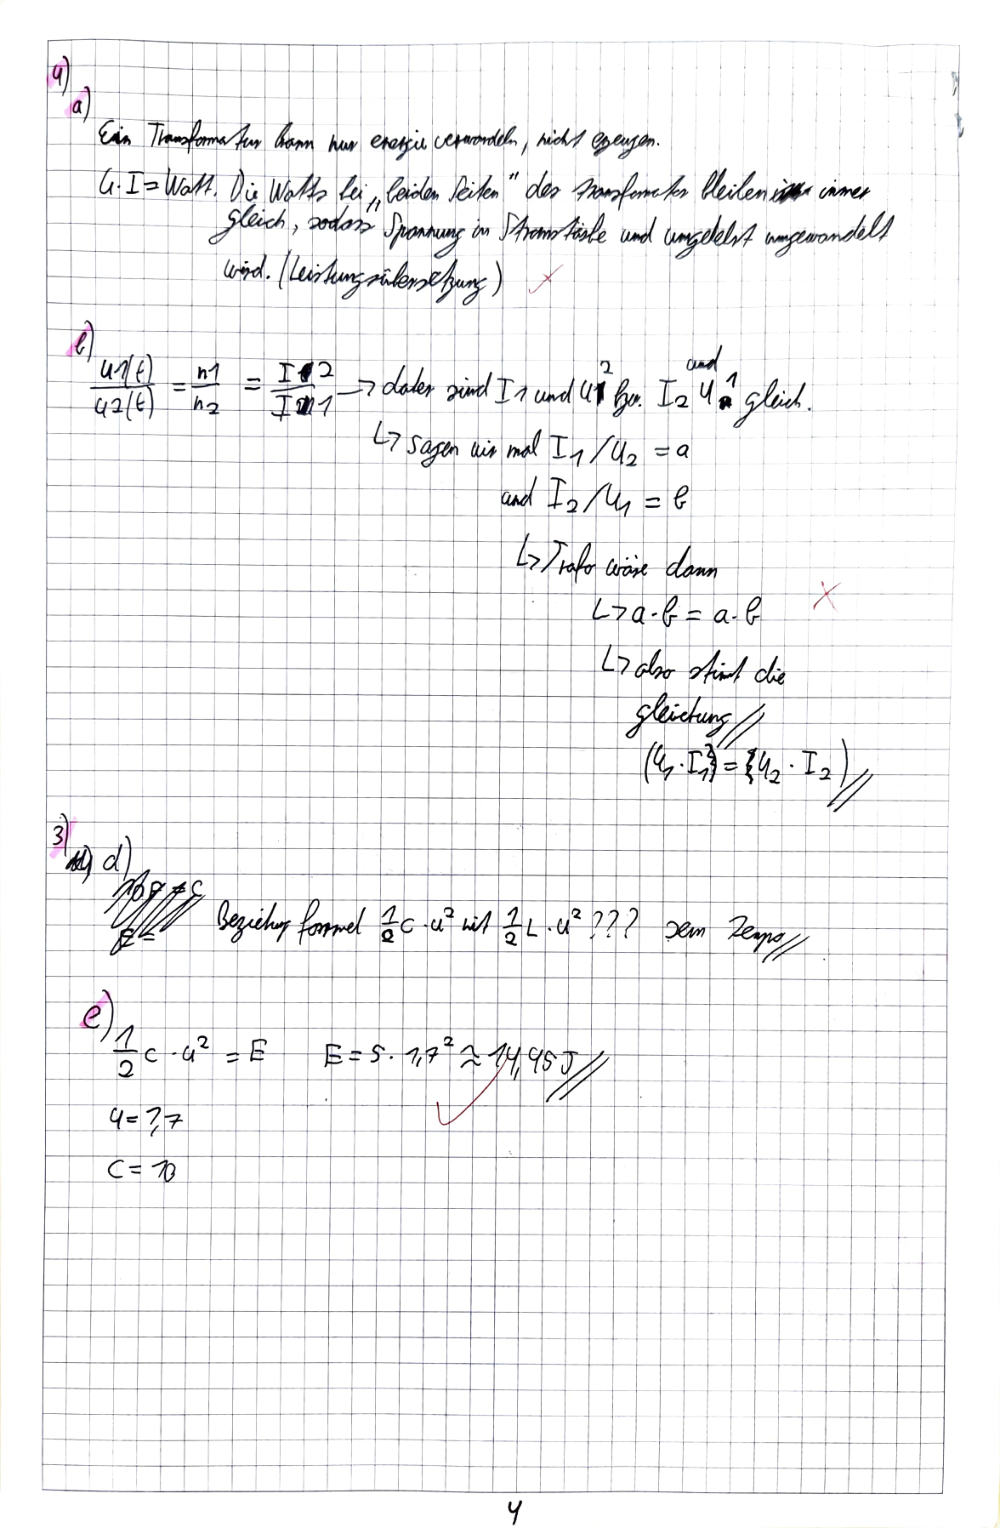 4)
a)
Ein Transformator kann nur energie verwandeln, nicht erzeugen.
U·I=Watt. Die Watts bei „beiden Seiten" des transformators bleiben immer
gleich, sodass Spannung in Stromstärke und umgekehrt umgewandelt
wird. (Leistungsübersetzung)
b)
u1(t)/u2(t) = n1/n2 = I2/I1 → daher sind I1 und U2 bzw. I2 und U1 gleich.
↳ sagen wir mal I1/U2 = a
und I2/U1 = b
↳ Trafo wäre dann
↳ a·b = a·b
↳ also stimt die
gleichung
(U1·I1) = (U2·I2)
3)
d)
Beziehung formel 1/2 C·u² mit 1/2 L·u² ???
e)
1/2 C·u² = E E = 5·1,7² ≈ 14,45 J
U = 1,7
C = 10
4